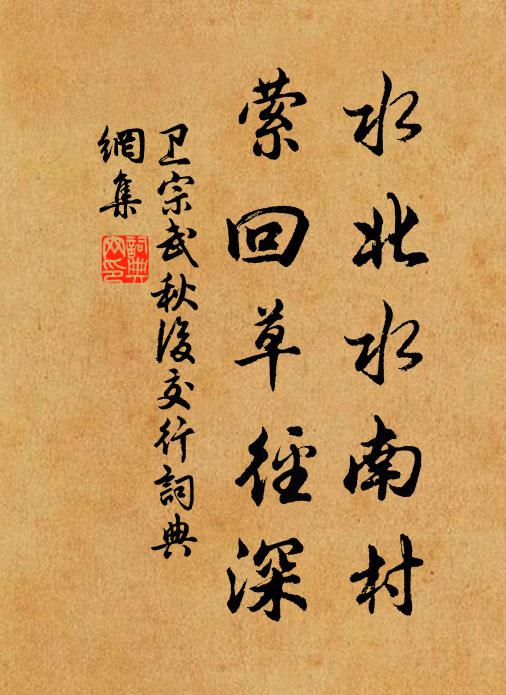 水北水南村
萦回草径深
卫宗武秋後交行詞典
網集
詞典
网印